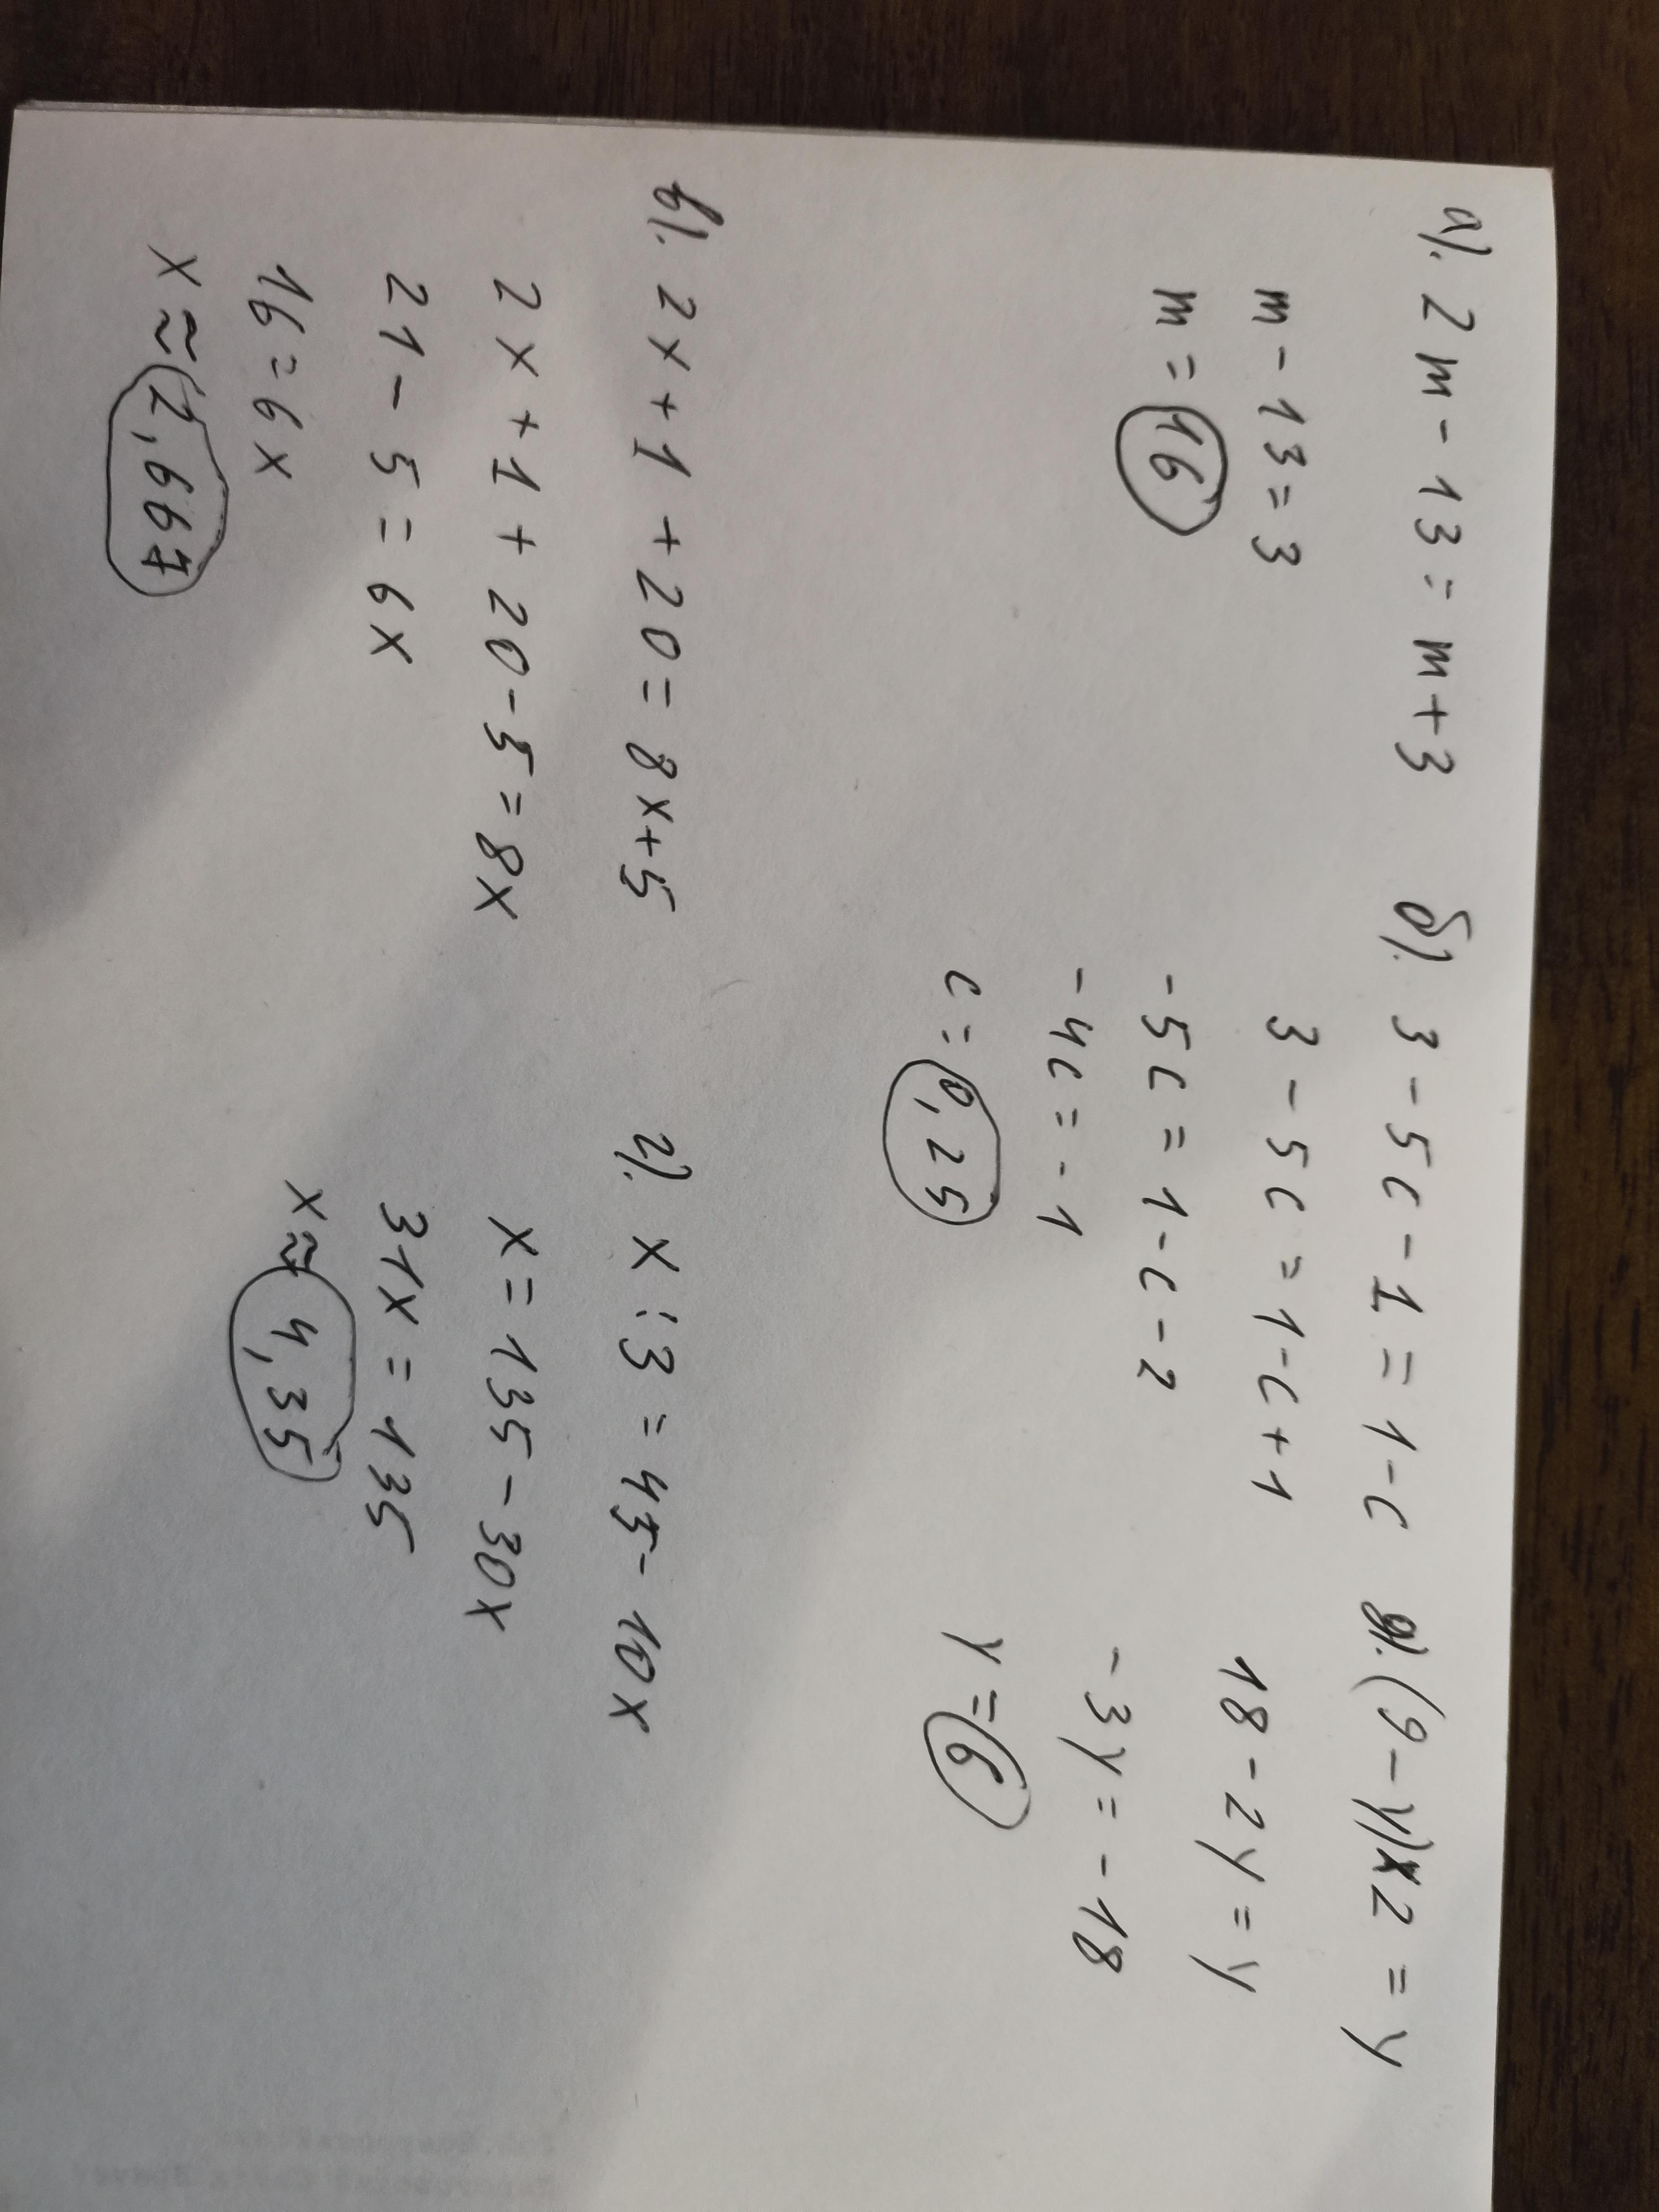 а). 2m - 13 = m + 3
m - 13 = 3
m = 16
б). 3 - 5c - 1 = 1 - c
3 - 5c = 1 - c + 1
-5c = 1 - c - 2
-4c = -1
c = 0,25
д). (9 - y) x 2 = y
18 - 2y = y
-3y = -18
y = 6
в). 2x + 1 + 20 = 8x + 5
2x + 1 + 20 - 5 = 8x
21 - 5 = 6x
16 = 6x
x ≈ 2,667
г). x : 3 = 45 - 10x
x = 135 - 30x
31x = 135
x ≈ 4,35